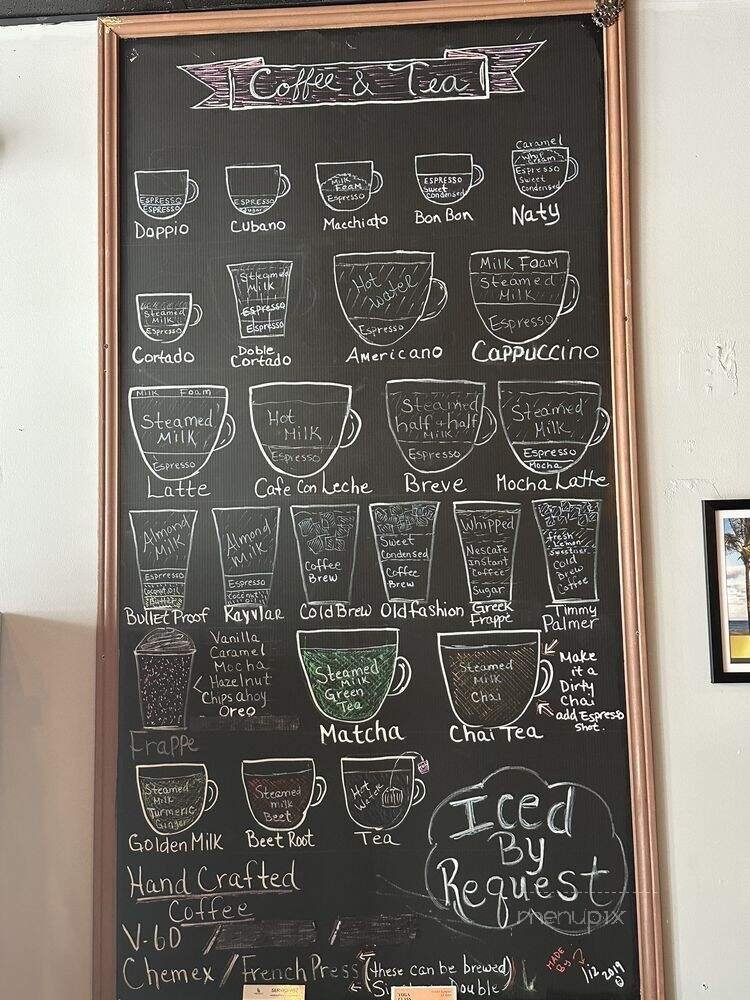 Coffee & Tea
ESPRESSO
ESPRESSO
Doppio
ESPRESSO
Sugar
Cubano
Milk
Foam
Espresso
Macchiato
ESPRESSO
Sweet
Condensed
Bon Bon
Caramel
Whip
Cream
Espresso
Sweet
Condensed
Naty
Steamed
Milk
Espresso
Cortado
Steamed
Milk
Espresso
Espresso
Doble
Cortado
Hot
Water
Espresso
Americano
Milk Foam
Steamed
Milk
Espresso
Cappuccino
Milk Foam
Steamed
Milk
Espresso
Latte
Hot
Milk
Espresso
Cafe Con Leche
Steamed
half + half
Milk
Espresso
Breve
Steamed
Milk
Espresso
Mocha
Mocha Latte
Almond
Milk
Espresso
Coconut Oil
Butter
Bullet Proof
Almond
Milk
Espresso
Coconut Oil
Kayvlar
Coffee
Brew
Cold Brew
Sweet
Condensed
Coffee
Brew
Old fashion
Whipped
Nescafe
Instant
Coffee
Sugar
Greek
Frappe
fresh
Lemon
Sweetner
Cold
Brew
Coffee
Timmy
Palmer
Vanilla
Caramel
Mocha
Hazelnut
Chips ahoy
Oreo
Frappe
Steamed
Milk
Green
Tea
Matcha
Steamed
Milk
Chai
Chai Tea
Make
it a
Dirty
Chai
add Espresso
Shot.
Steamed
Milk
Turmeric
Ginger
Golden Milk
Steamed
milk
Beet
Beet Root
Hot
Water
Tea
Iced
By
Request
menupix
Hand Crafted
Coffee
V-60 /
/
Chemex / French Press
(these can be brewed)
Double
MADE
BY
liz 2019